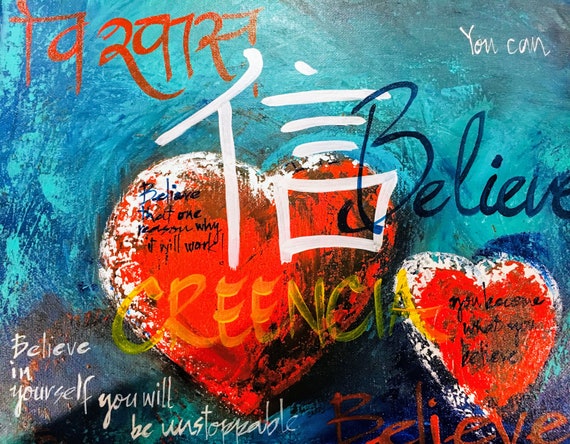 विश्वास
You can
信
Believe
Believe
that one
reason why
it will work!
CREENCIA
you become
what you
believe
Believe
in
yourself you will
be unstoppable
Believe